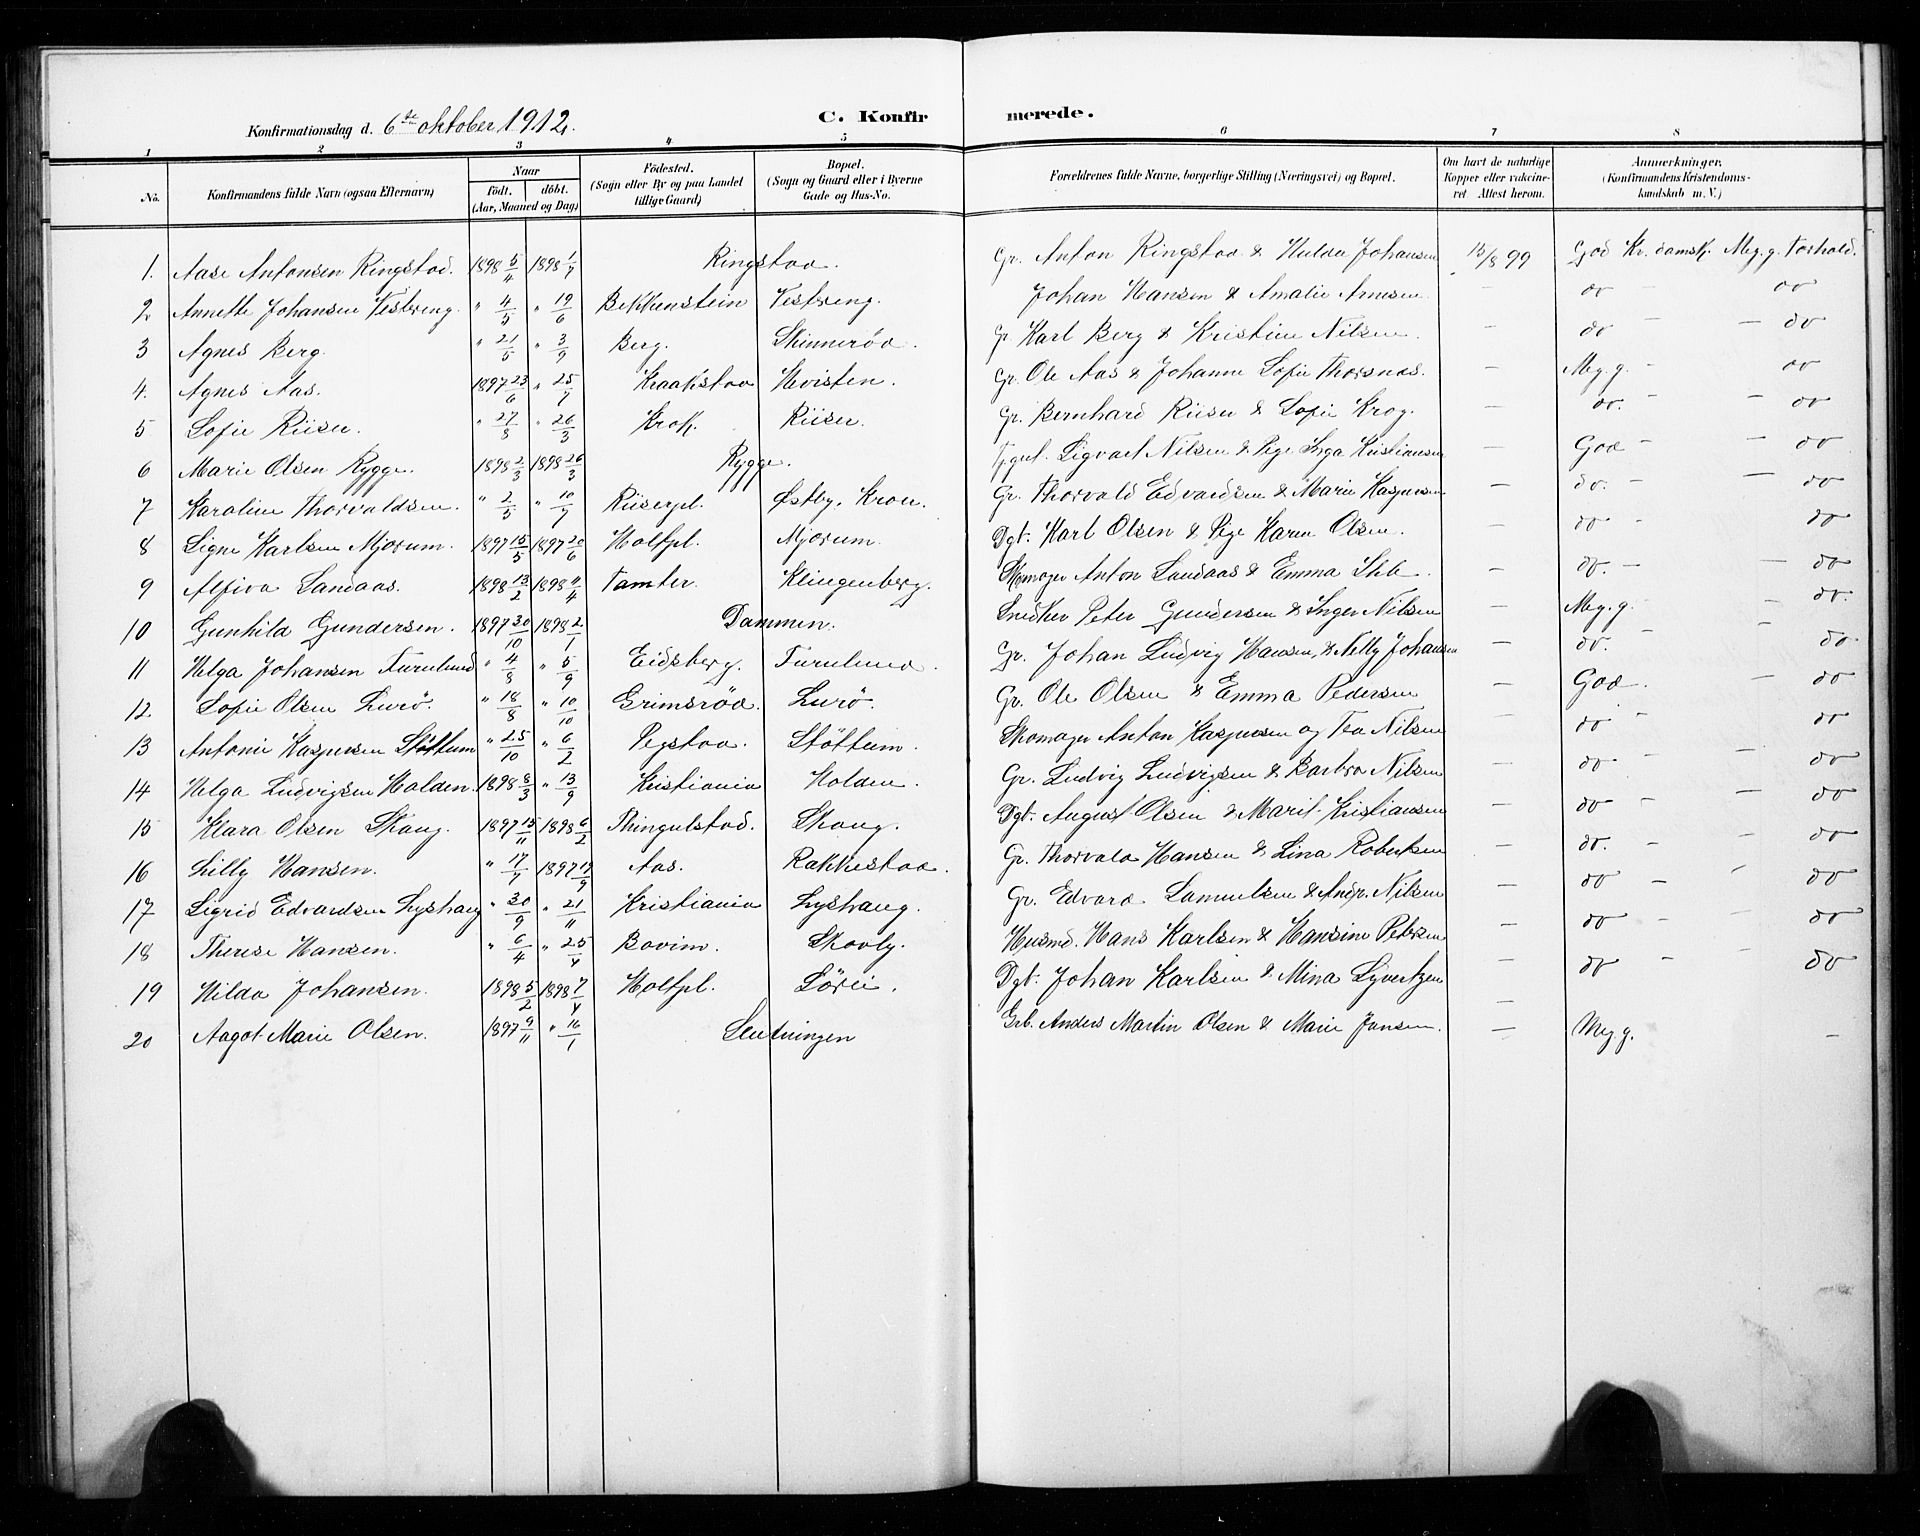 Konfirmationsdag d. 6te oktober 1912. C. Konfirmerede.
1 2 3 4 5 6 7 8
No. Konfirmandens fulde Navn (ogsaa Efternavn) Naar født, døbt. (Aar, Maaned og Dag) Fødested. (Sogn eller By og paa Landet tillige Gaard) Bopæl. (Sogn og Gaard eller i Byerne Gade og Hus-No. Forældrenes fulde Navne, borgerlige Stilling (Næringsvei) og Bopæl. Om havt de naturlige Kopper eller vakcineret. Attest herom. Anmerkninger. (Konfirmandens Kristendomskundskab m. V.)
1. Aase Antonsen Ringstad. 1898 5/4 1898 1/7 Ringstad. Gr. Anton Ringstad & Hulda Johansen 15/8 99 God Kr. damsk. Meg. g. Forhold.
2 Annette Johansen Vestreng. " 4/5 " 19/6 Bekkenstein Vestreng. Johan Hansen & Amalie Arnesen - do - do
3 Agnes Berg. " 21/5 " 3/9 Berg. Skinnerød. Gr. Karl Berg & Kristine Nilsen. - do - do
4. Agnes Aas. 1897 23/6 " 25/7 Kraakstad Hvisten. Gr. Ole Aas & Johanne Sofie Thorsnæs. - Meg. g. - do
5 Sofie Riiser. " 27/8 " 26/3 Krok. Riiser. Gr. Bernhard Riiser & Sofie Krog. - do. - do
6 Marie Olsen Rygge. 1898 2/3 1898 26/3 Rygge. Sigvart Nilsen & Pige Inga Kristiansen - God - do
7 Karoline Thorvaldsen. " 2/5 " 10/7 Riiserpl. Østby, Kroer. Gr. Thorvald Edvardsen & Marie Kaspersen - do. - do
8 Signe Karlsen Mjorum. 1897 15/5 1897 20/6 Holtpl. Mjorum. Dgt. Karl Olsen & Pige Karen Olsen. - do - do
9 Alfiva Sandaas. 1898 13/2 1898 11/4 Tamter. Klingenberg. Skomager Anton Sandaas & Emma - do. - do
10 Gunhild Gundersen. 1897 30/10 1898 2/1 Dammen. Snedker Peter Gundersen & Inger Nilsen - Meg. g. - do.
11 Helga Johansen Furulund " 4/8 " 5/9 Eidsberg. Furulund. Gr. Johan Ludvig Hansen, & Nelly Johansen - do. - do
12. Sofie Olsen Lurø. " 18/8 " 10/10 Grimsrød. Lurø. Gr. Ole Olsen & Emma Pedersen - God. - do
13 Antonie Kaspersen Støttum " 25/10 " 6/2 Pegstad. Støttum. Skomager Anton Kaspersen og Tea Nilsen - do - do
14 Helga Ludvigsen Holden. 1898 8/3 " 13/9 Kristiania Holden. Gr. Ludvig Ludvigsen & Barbra Nilsen - do - do
15 Klara Olsen Skaug. 1897 15/11 1898 6/2 Thingulstad. Skaug. Dgt. August Olsen & Marit Kristiansen - do - do
16 Lilly Hansen. " 17/7 1897 19/9 Aas. Rakkestad. Gr. Thorvald Hansen & Lina Robertsen - do. - do
17 Sigrid Edvardsen Lyshaug " 30/9 " 21/11 Kristiania Lyshaug. Gr. Edvard Samuelsen & Andr. Nilsen - do - do
18 Therese Hansen. " 6/4 " 25/4 Bovim. Skovly. Husmd. Hans Karlsen & Hansine Petersen - do - do
19 Hilda Johansen. 1898 5/2 1898 7/4 Holtpl. Sørli. Dgt. Johan Karlsen & Mina Syvertsen - do - do
20 Aagot Marie Olsen. 1897 9/11 " 16/1 Slutningen Grb. Anders Martin Olsen & Marie Jansen. - Meg. g. -